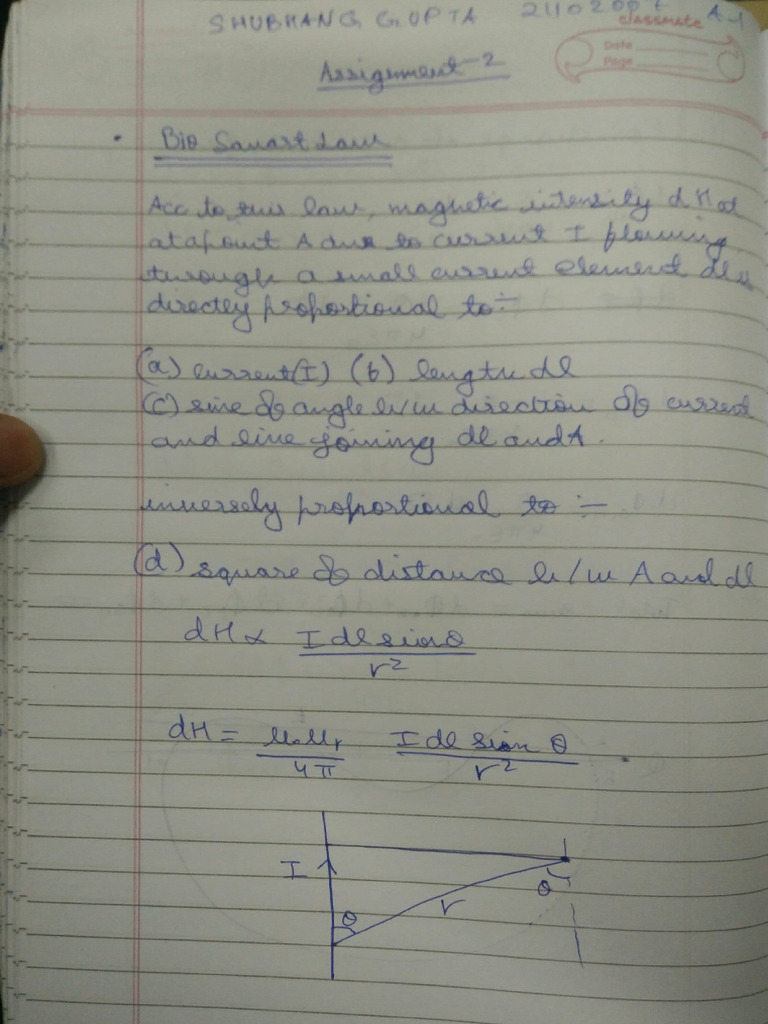 SHUBHANG GUPTA A-1
classmate
Date
Page
Assignment-2
• Bio Savart Law
Acc to this law, magnetic intensity dH at
at a point A due to current I flowing
through a small current element dl is
directly proportional to:-
(a) current(I) (b) length dl
(c) sine of angle b/w direction of current
and line joining dl and A.
inversely proportional to :-
(d) square of distance b/w A and dl
dH ∝ I dl sinθ / r²
dH = μ₀μr / 4π I dl sin θ / r²
I
θ
r
θ